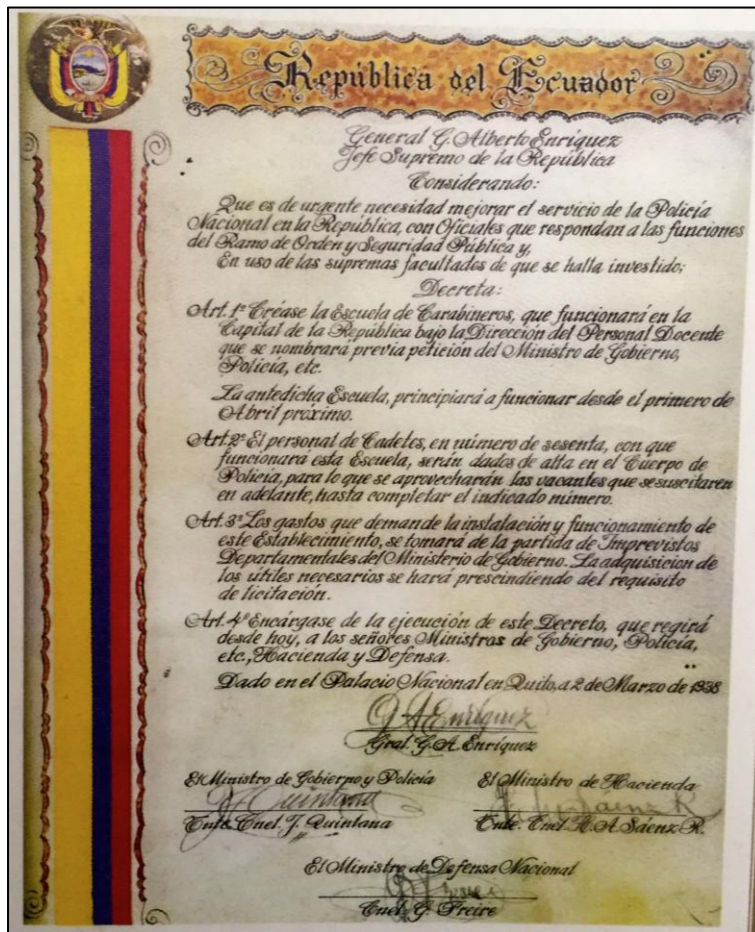 República del Ecuador
General G. Alberto Enríquez
Jefe Supremo de la República
Considerando:
Que es de urgente necesidad mejorar el servicio de la Policía
Nacional en la República, con Oficiales que respondan a las funciones
del Ramo de Orden y Seguridad Pública y,
En uso de las supremas facultades de que se halla investido;
Decreta:
Art. 1º Créase la Escuela de Carabineros, que funcionará en la
Capital de la República bajo la Dirección del Personal Docente
que se nombrará previa petición del Ministro de Gobierno,
Policía, etc.
La antedicha Escuela, principiará a funcionar desde el primero de
Abril próximo.
Art. 2º El personal de Cadetes, en número de sesenta, con que
funcionará esta Escuela, serán dados de alta en el Cuerpo de
Policía, para lo que se aprovecharán las vacantes que se suscitaren
en adelante, hasta completar el indicado número.
Art. 3º Los gastos que demande la instalación y funcionamiento de
este Establecimiento, se tomará de la partida de Imprevistos
Departamentales del Ministerio de Gobierno. La adquisición de
los útiles necesarios se hará prescindiendo del requisito
de licitación.
Art. 4º Encárgase de la ejecución de este Decreto, que regirá
desde hoy, a los señores Ministros de Gobierno, Policía,
etc., Hacienda y Defensa.
Dado en el Palacio Nacional en Quito, a 2 de Marzo de 1938
G A Enríquez
Gral. G. A. Enríquez
El Ministro de Gobierno y Policía El Ministro de Hacienda
J. Quintana Sáenz R
Tnte. Cnel. J. Quintana Tnte. Cnel. H. A. Sáenz R.
El Ministro de Defensa Nacional
G. Freire
Cnel. G. Freire